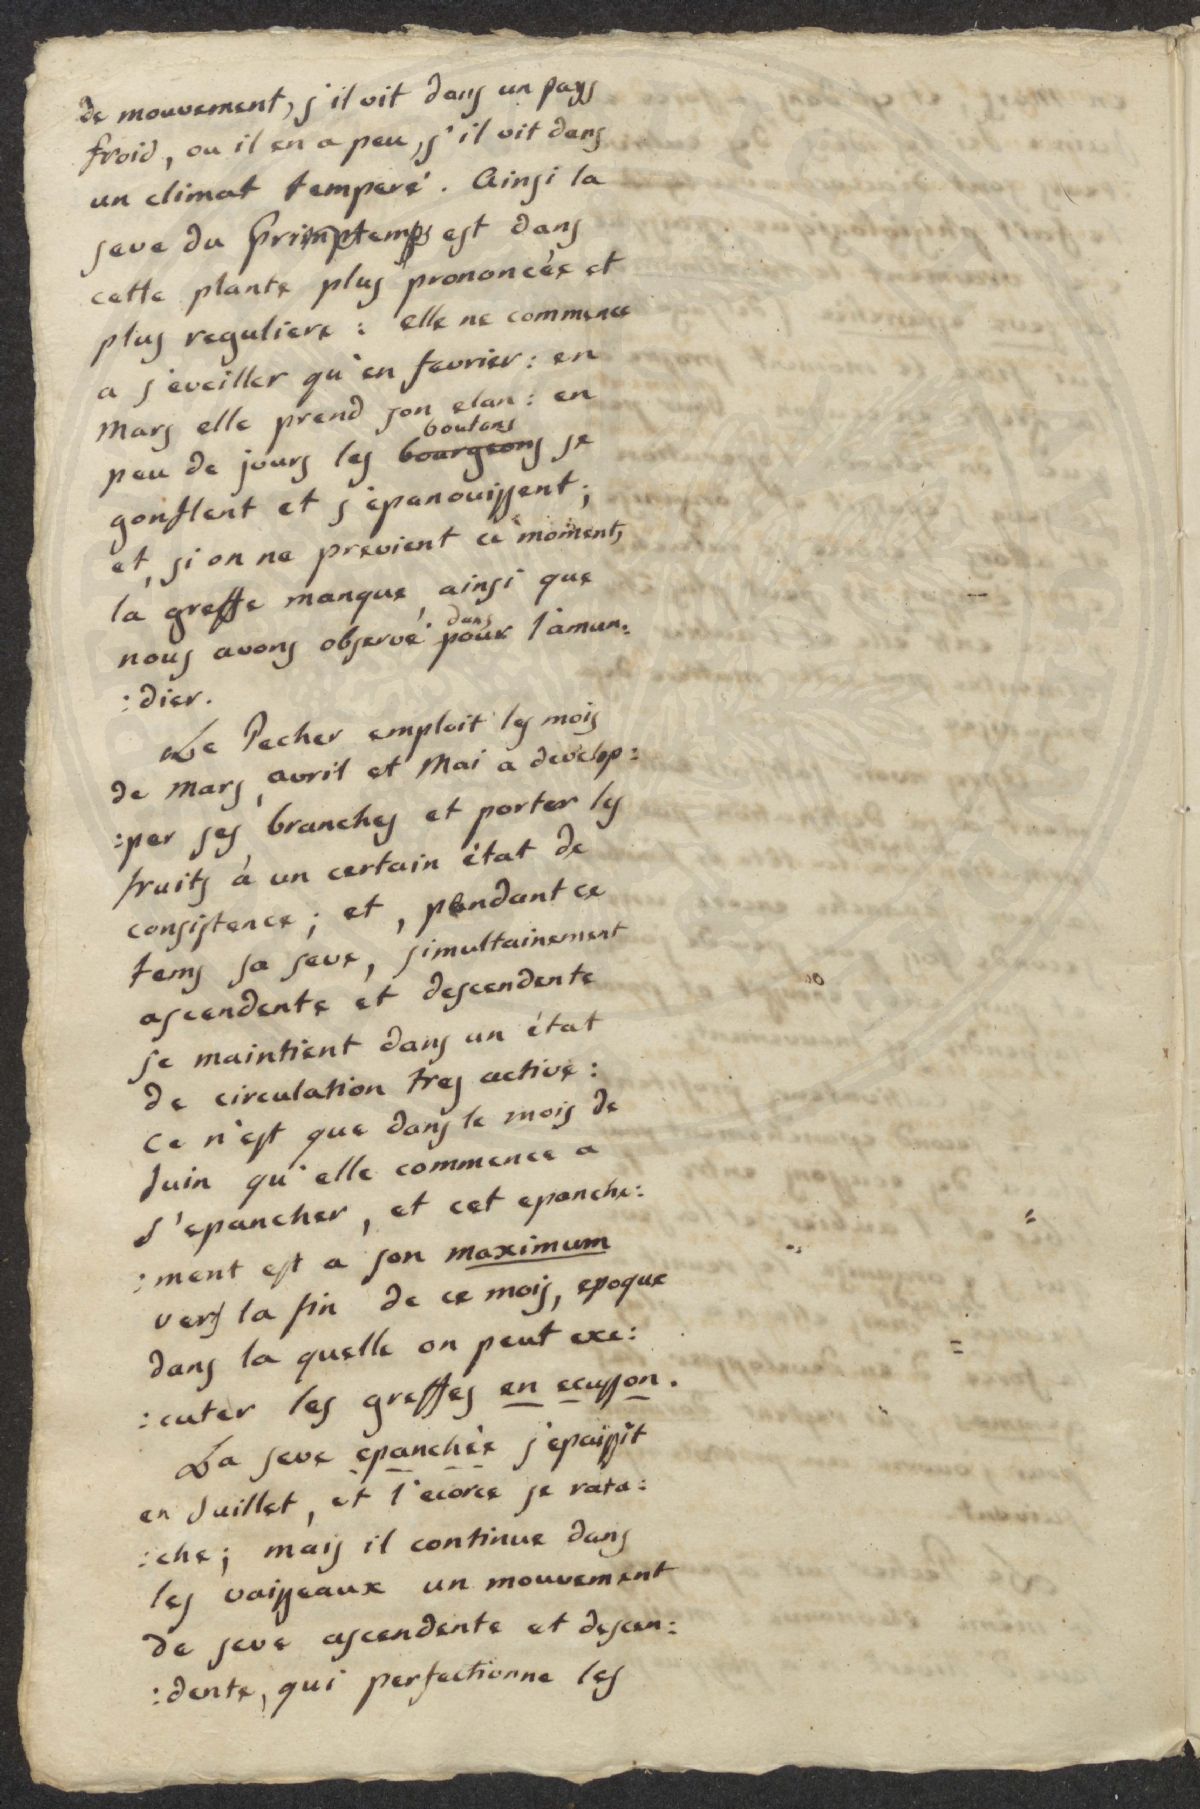 de mouvement, s'il vit dans un pays
froid, ou il en a peu, s'il vit dans
un climat temperé. Ainsi la
seve du Primptemps est dans
cette plante plus prononcée et
plus reguliere : elle ne commence
a s'eveiller qu'en fevrier : en
Mars elle prend son elan : en
boutons
peu de jours les bourgeons se
gonflent et s'epanouissent ;
et, si on ne previent ce moment,
la greffe manque, ainsi que
dans
nous avons observé pour l'aman:
:dier.
Le Pecher emploit les mois
de Mars, avril et Mai a develop:
:per ses branches et porter les
fruits à un certain état de
consistence ; et, pendant ce
tems sa seve, simultainement
ascendente et descendente
se maintient dans un état
de circulation tres active :
Ce n'est que dans le mois de
Juin qu'elle commence a
s'epancher, et cet epanche:
:ment est a son maximum
vers la fin de ce mois, epoque
dans la quelle on peut exe:
:cuter les greffes en ecusson.
La seve epanchée s'epaissit
en Juillet, et l'ecorce se rata:
:che ; mais il continue dans
les vaisseaux un mouvement
de seve ascendente et descen:
:dente, qui perfectionne les